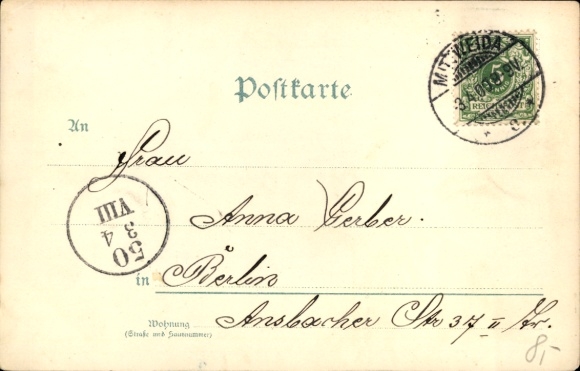 Postkarte
MITTWEIDA
5
REICHSPOST
An
Frau
Anna Gerber.
50
3
4
VIII
in Berlin
Wohnung
(Straße und Hausnummer)
Ansbacher Str 37 II Tr.
8,-